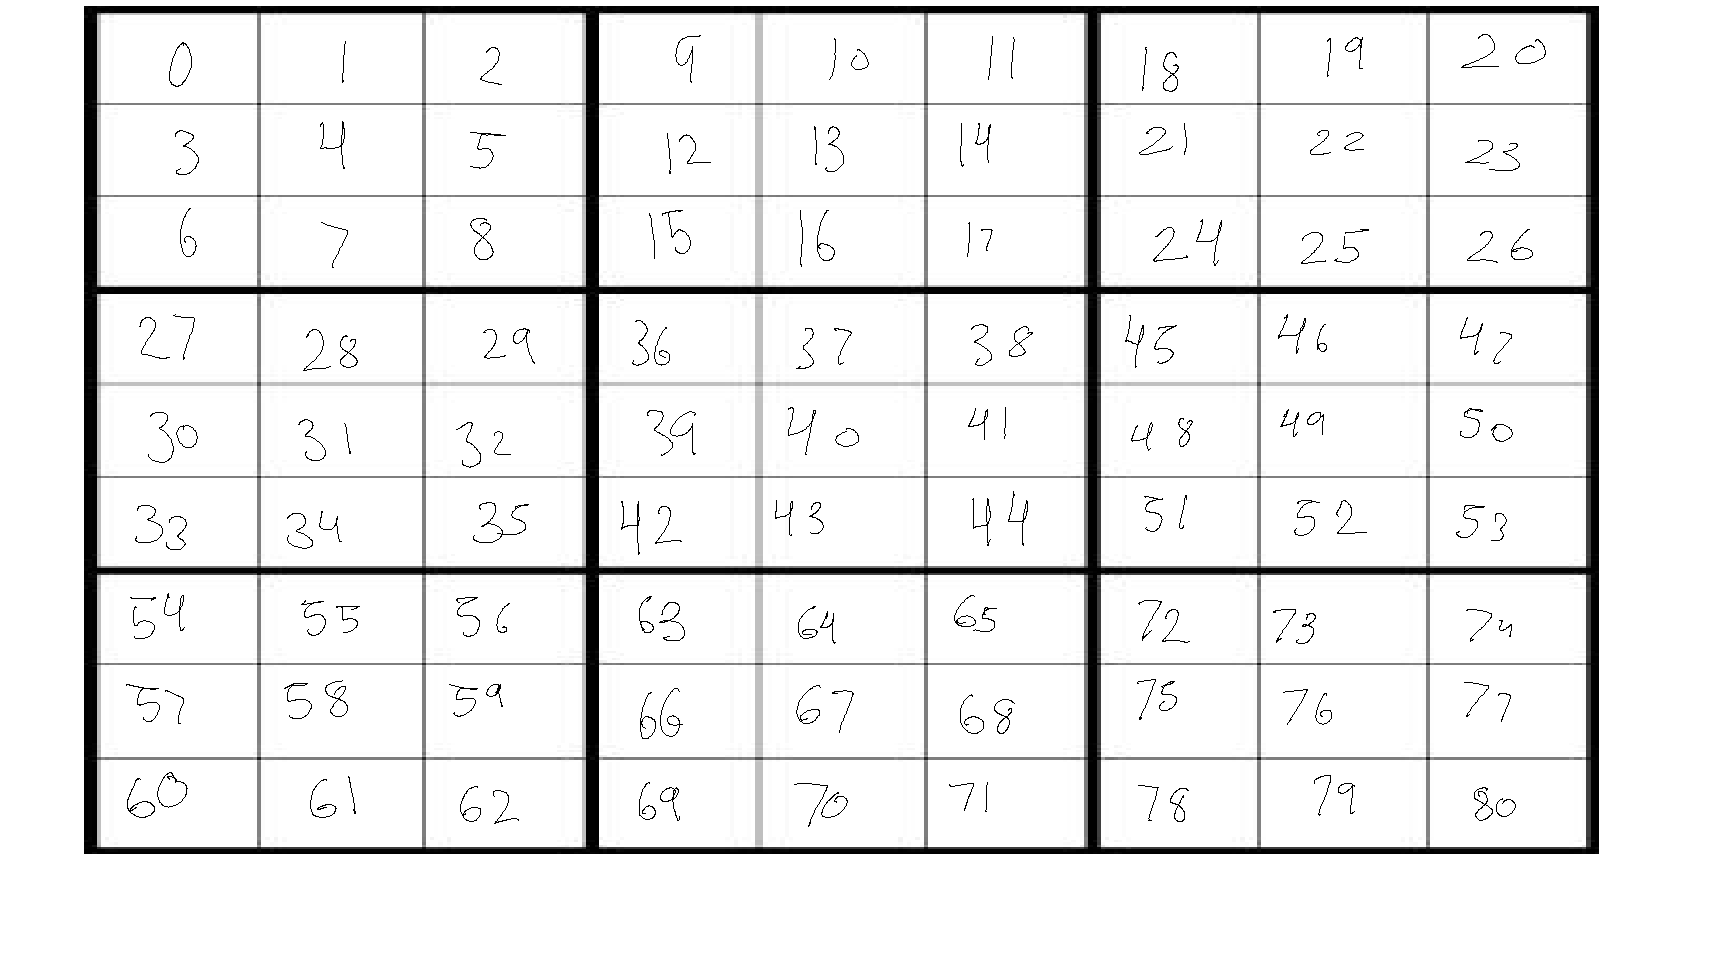 0 1 2 9 10 11 18 19 20
3 4 5 12 13 14 21 22 23
6 7 8 15 16 17 24 25 26
27 28 29 36 37 38 45 46 47
30 31 32 39 40 41 48 49 50
33 34 35 42 43 44 51 52 53
54 55 56 63 64 65 72 73 74
57 58 59 66 67 68 75 76 77
60 61 62 69 70 71 78 79 80